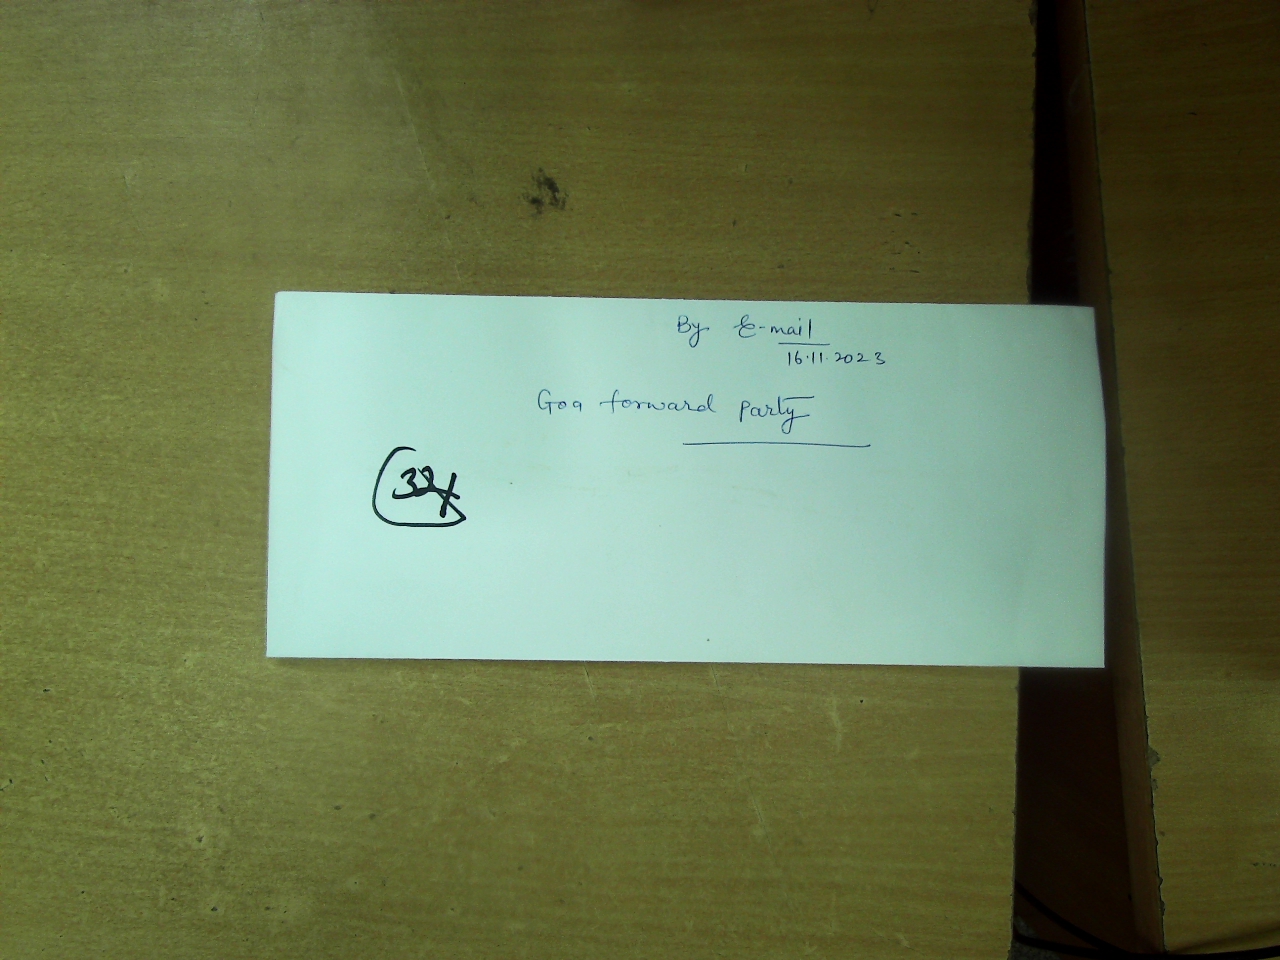 By E-mail
16.11.2023
Goa forward party